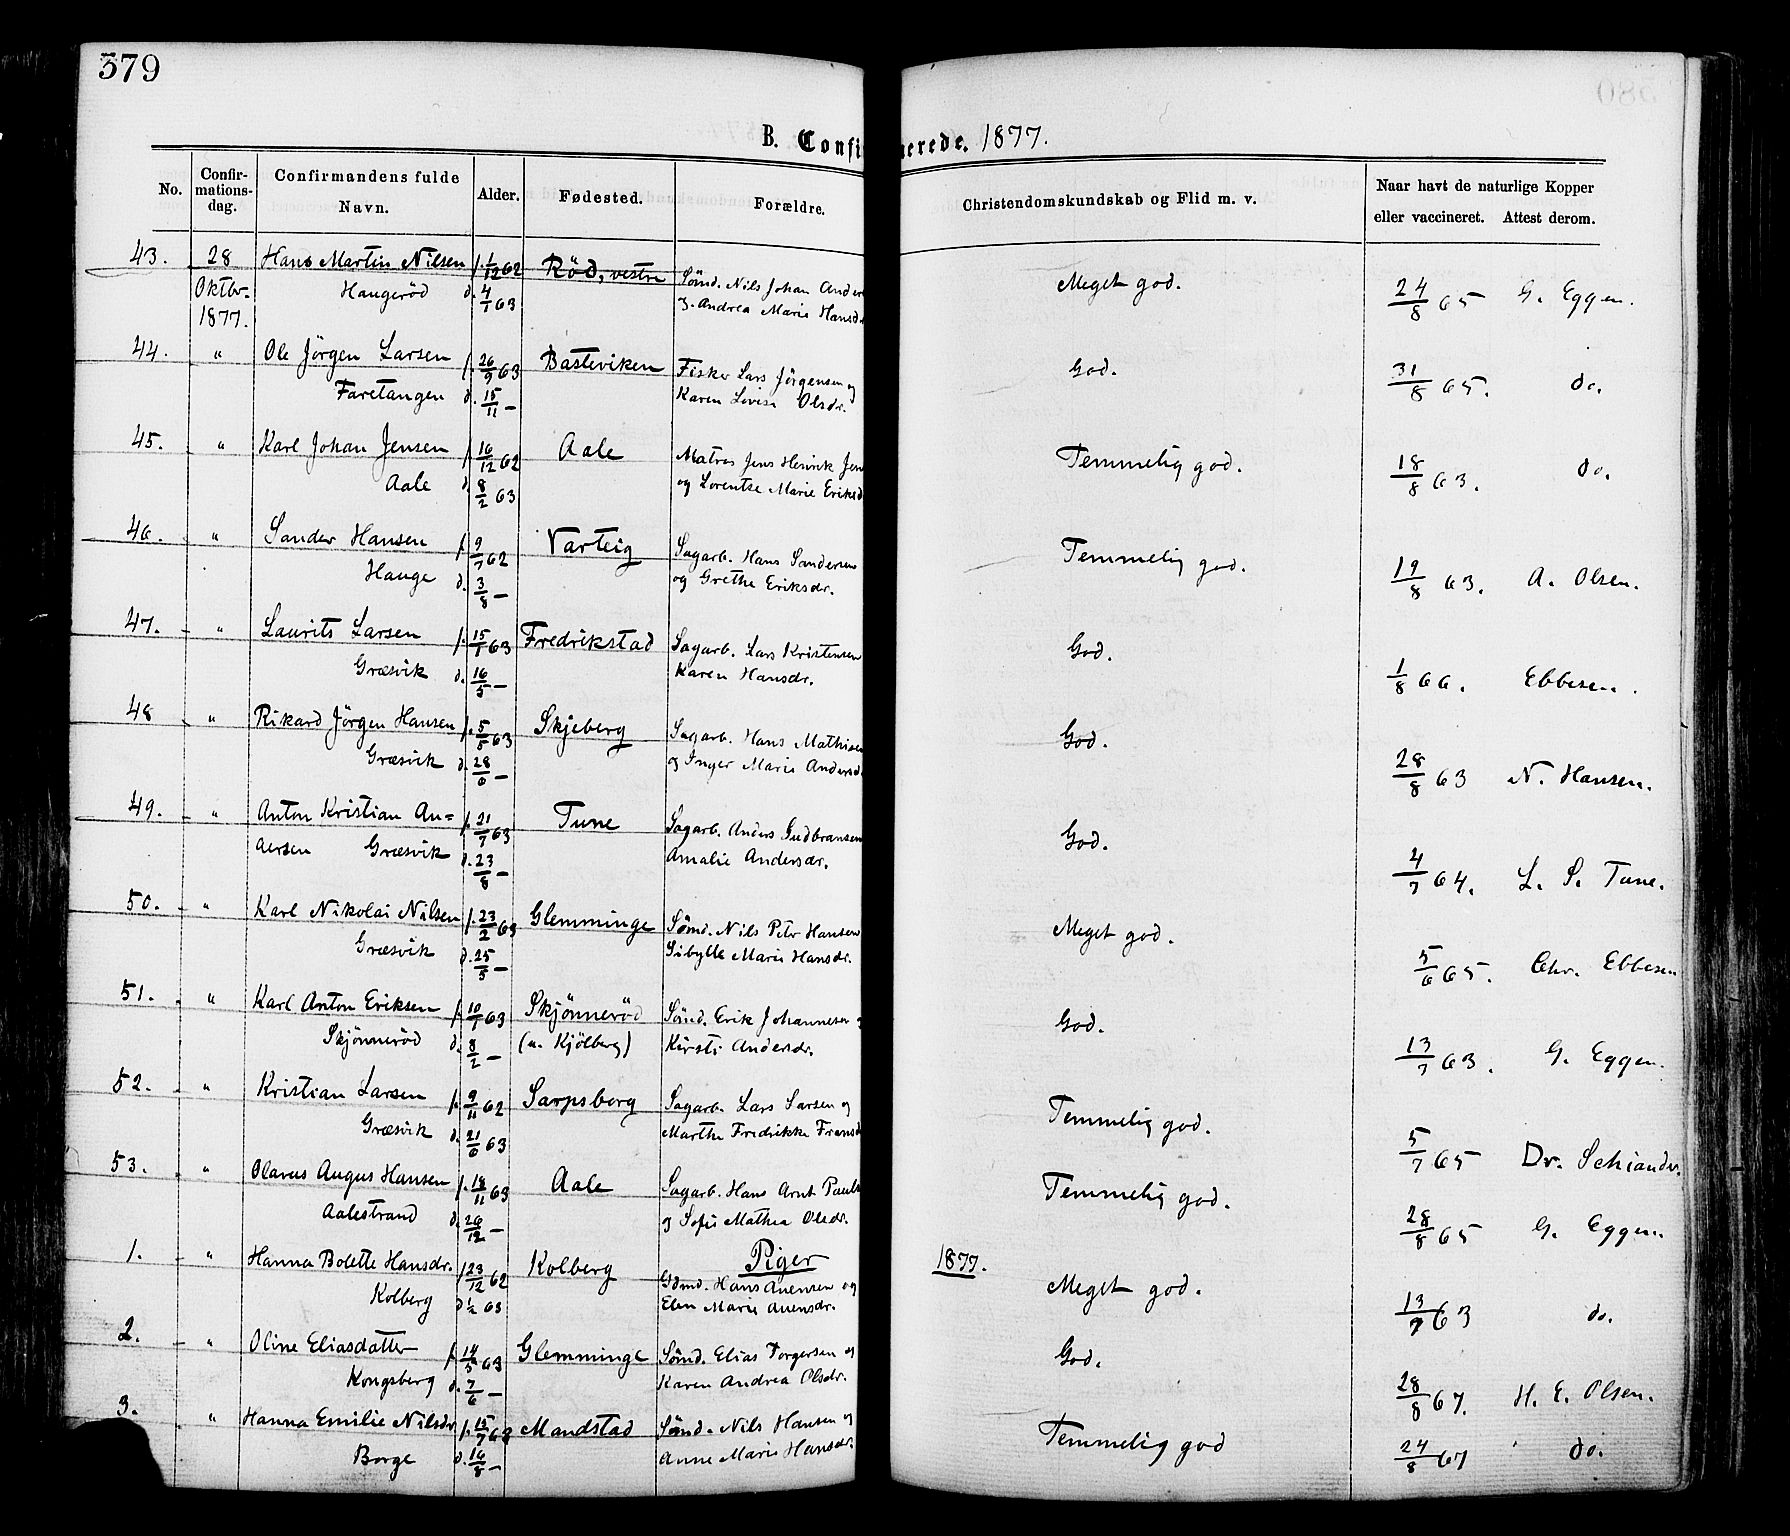 379
B. Confi erede. 1877.
No. Confir-mations-dag. Confirmandens fulde Navn. Alder. Fødested. Forældre. Christendomskundskab og Flid m. v. Naar havt de naturlige Kopper eller vaccineret. Attest derom.
43. 28 Hans Martin Nilsen f. 1/12 62 Rød, vestre Sønd. Nils Johan Anders Meget god. 24/8 65 G. Eggen.
Oktbr. Haugerød d. 4/1 63 og Andrea Marie Hansd
1877.
44. " Ole Jörgen Larsen f. 26/9 63 Basteviken Fisker Lars Jörgensen og God. 31/8 65. do.
Faretangen d. 15/11 — Karen Lovise Olsdr.
45. " Karl Johan Jensen f. 16/12 62 Aale Matros Jens Henrik Jen Temmelig god. 18/8 63. do.
Aale d. 8/2 63 og Lorentse Marie Eriksd
46. " Sander Hansen f. 9/7 62 Varteig Sagarb. Hans Sandersen Temmelig god. 19/8 63. A. Olsen.
Hauge d. 3/8 — og Grethe Eriksdr.
47. " Laurits Larsen f. 15/1 63 Fredrikstad Sagarb. Lars Kristensen God. 1/8 66. Ebbesen.
Græsvik d. 16/5 — Karen Hansdr.
48 " Rikard Jörgen Hansen f. 5/5 63 Skjeberg Sagarb. Hans Mathisen God. 28/8 63 N. Hansen.
Græsvik d. 28/6 — og Inger Marie Andersd
49. " Anton Kristian An= f. 21/7 63 Tune Sagarb. Anders Gudbransen God. 4/7 64. L. S. Tune.
dersen Græsvik d. 23/8 — Amalie Andersdr.
50. " Karl Nikolai Nilsen f. 23/2 63 Glemminge Sømd. Nils Petr Hansen Meget god. 5/6 65. Chr. Ebbesen
Græsvik d. 25/5 — Sibylle Marie Hansdr.
51. " Karl Anton Eriksen f. 10/1 63 Skjønnerød Sømd. Erik Johannesen God. 13/7 63. G. Eggen.
Skjønnerød d. 8/2 — (u. Kjölberg) Kirsti Andersdr.
52. " Kristian Larsen f. 9/11 62 Sarpsborg Sagarb. Lars Larsen og Temmelig god. 5/7 65 Dr. Schiander.
Græsvik d. 21/6 63 Marthe Fredrikke Fransd
53. " Olavus Augus Hansen f. 18/11 63 Aale Sagarb. Hans Arnt Pauls Temmelig god. 28/8 65 G. Eggen.
Aalestrand d. 26/12 — og Sofie Mathea Olsdr.
Piger 1877.
1. " Hanna Bolette Hansdr. f 23/12 62 Kolberg Gdmd. Hans Auensen og Meget god. 13/7 63 do.
Kolberg d 1/2 63 Elen Marie Auensdr.
2. " Oline Eliasdatter f. 14/5 63 Glemminge Sømd. Elias Torgersen og God. 28/8 67. H. E. Olsen.
Kongsberg d. 7/6 — Karen Andrea Olsdr.
3. " Hanna Emilie Nilsdr f. 15/7 63 Mandstad Sømd. Nils Hansen og Temmelig god 24/8 67 do.
Borge d. 16/8 — Anne Marie Hansdr.